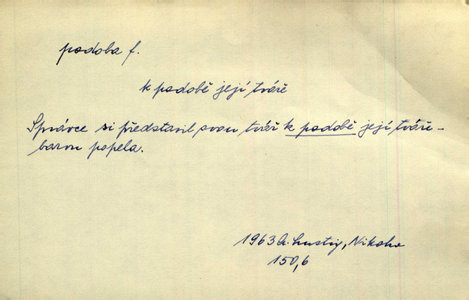 podoba f.
k podobě její tváře
Správce si představil svou tvář k podobě její tváře –
barvu popela.
1963 A. Lustig, Nikoho
150,6